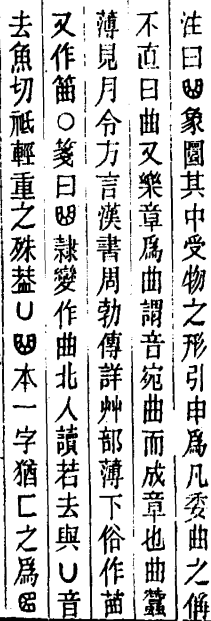 注曰𠚖象圜其中受物之形引申爲凡委曲之偁
不直曰曲又樂章爲曲謂音宛曲而成章也曲蠶
薄見月令方言漢書周勃傳詳艸部薄下俗作苗
又作筁○箋曰𠚖隸變作曲北人讀若去與凵音
去魚切祗輕重之殊葢凵𠚖本一字猶匚之爲𠥓